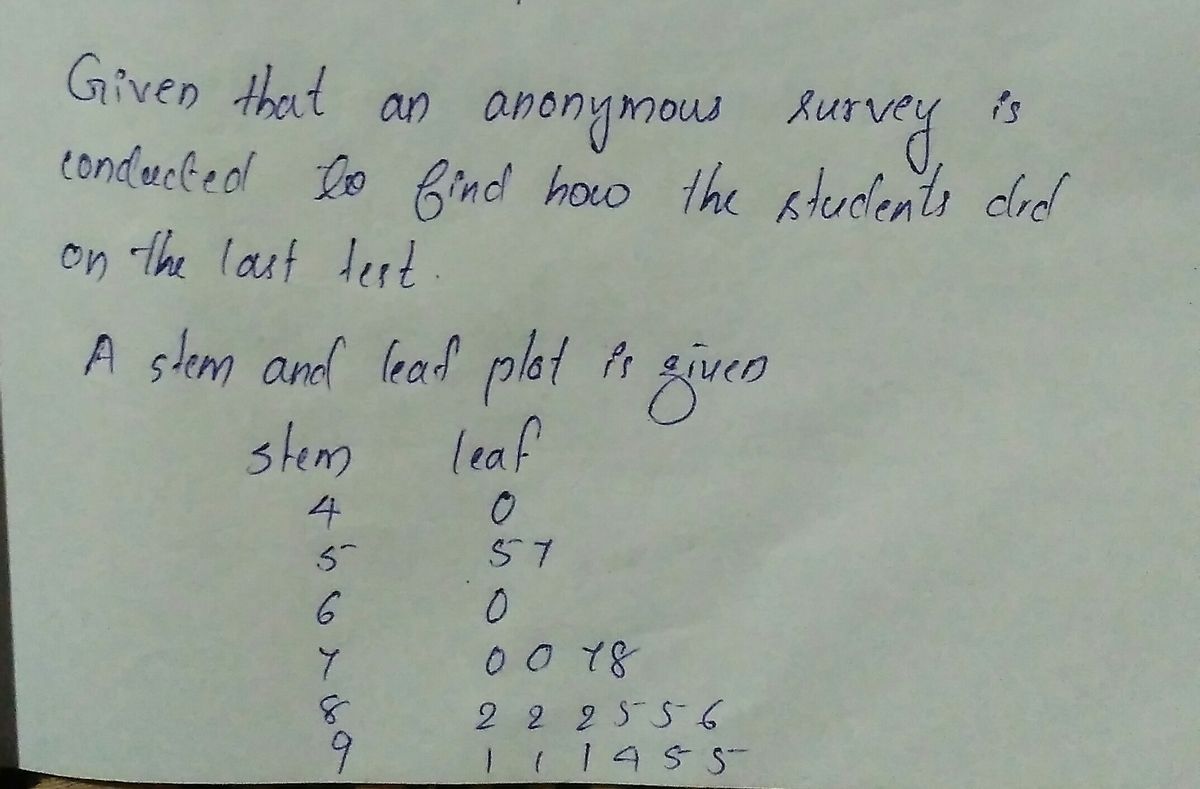 Given that an anonymous survey is
conducted to find how the students did
on the last test.
A stem and leaf plot is given
stem leaf
4 0
5 5 7
6 0
7 0 0 7 8
8 2 2 2 5 5 6
9 1 1 1 4 5 5